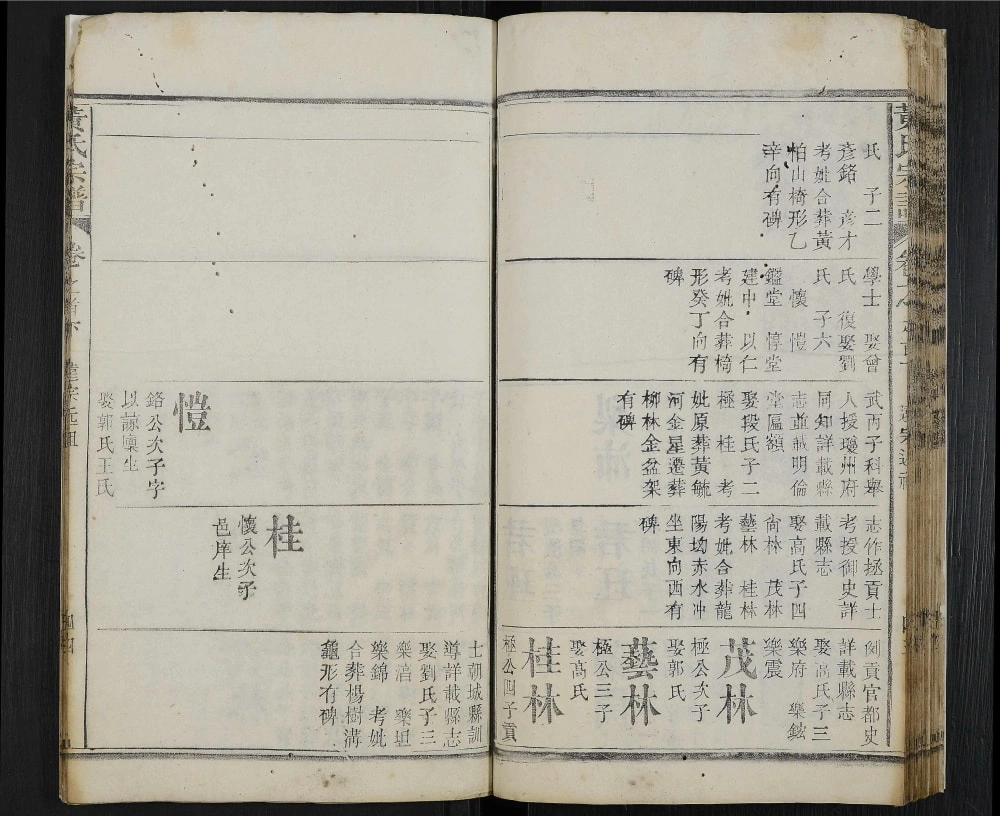 黃氏宗譜
氏　子二
彥鉻　彥才
考妣合葬黃
柏山椅形乙
辛向有碑
學士　娶曾
氏　復娶劉
氏　子六
懷　愷
鑑堂　惇堂
建中　以仁
考妣合葬椅
形癸丁向有
碑
武丙子科舉
人授瓊州府
同知詳載縣
志並載明倫
堂匾額
娶段氏子二
極　桂　考
妣原葬黃毓
河金星遷葬
柳林金盆架
有碑
志作拯貢士
考授御史詳
載縣志
娶高氏子四
尙林　茂林
藝林　桂林
考妣合葬龍
陽坳赤水冲
坐東向西有
碑
例貢官都史
詳載縣志
娶高氏子三
樂府　樂鉉
樂震
茂林
極公次子
娶郭氏
藝林
極公三子
娶高氏
桂林
極公四子貢
士朝城縣訓
導詳載縣志
娶劉氏子三
樂湆　樂坦
樂錦　考妣
合葬楊樹溝
龜形有碑
桂
懷公次子
邑庠生
愷
鉻公次子字
以諒廩生
娶郭氏王氏
黃氏宗譜